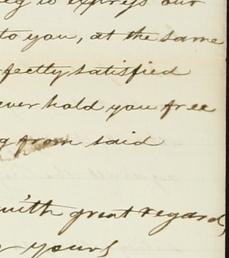 to express our
to you, at the same
fectly satisfied
ever hold you free
g from said
with great regard,
yours